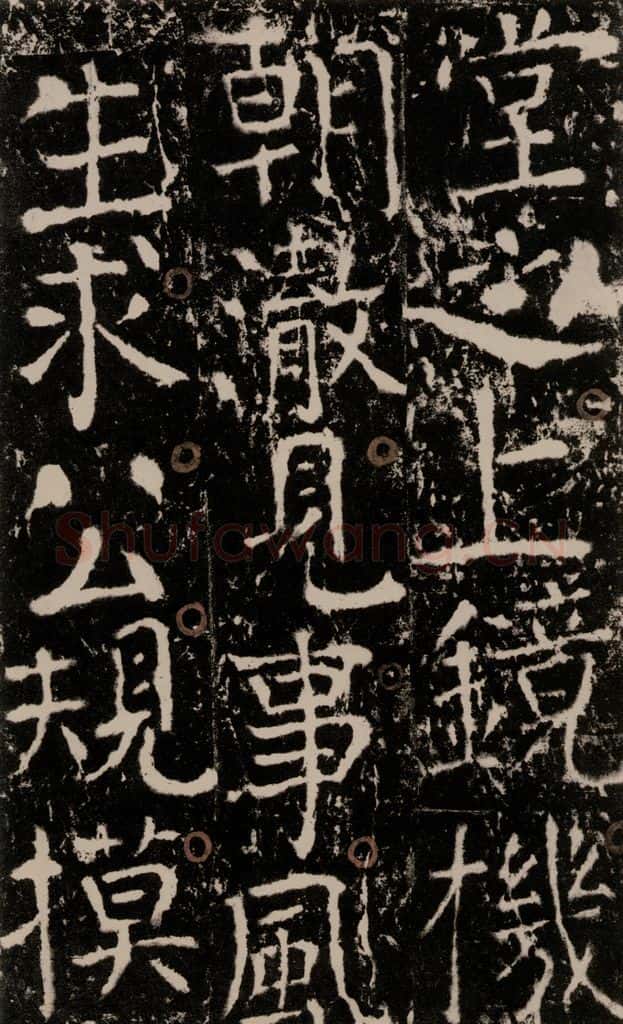 堂之上鏡機
朝澈見事風
生求公規摸
Shufawang.CN